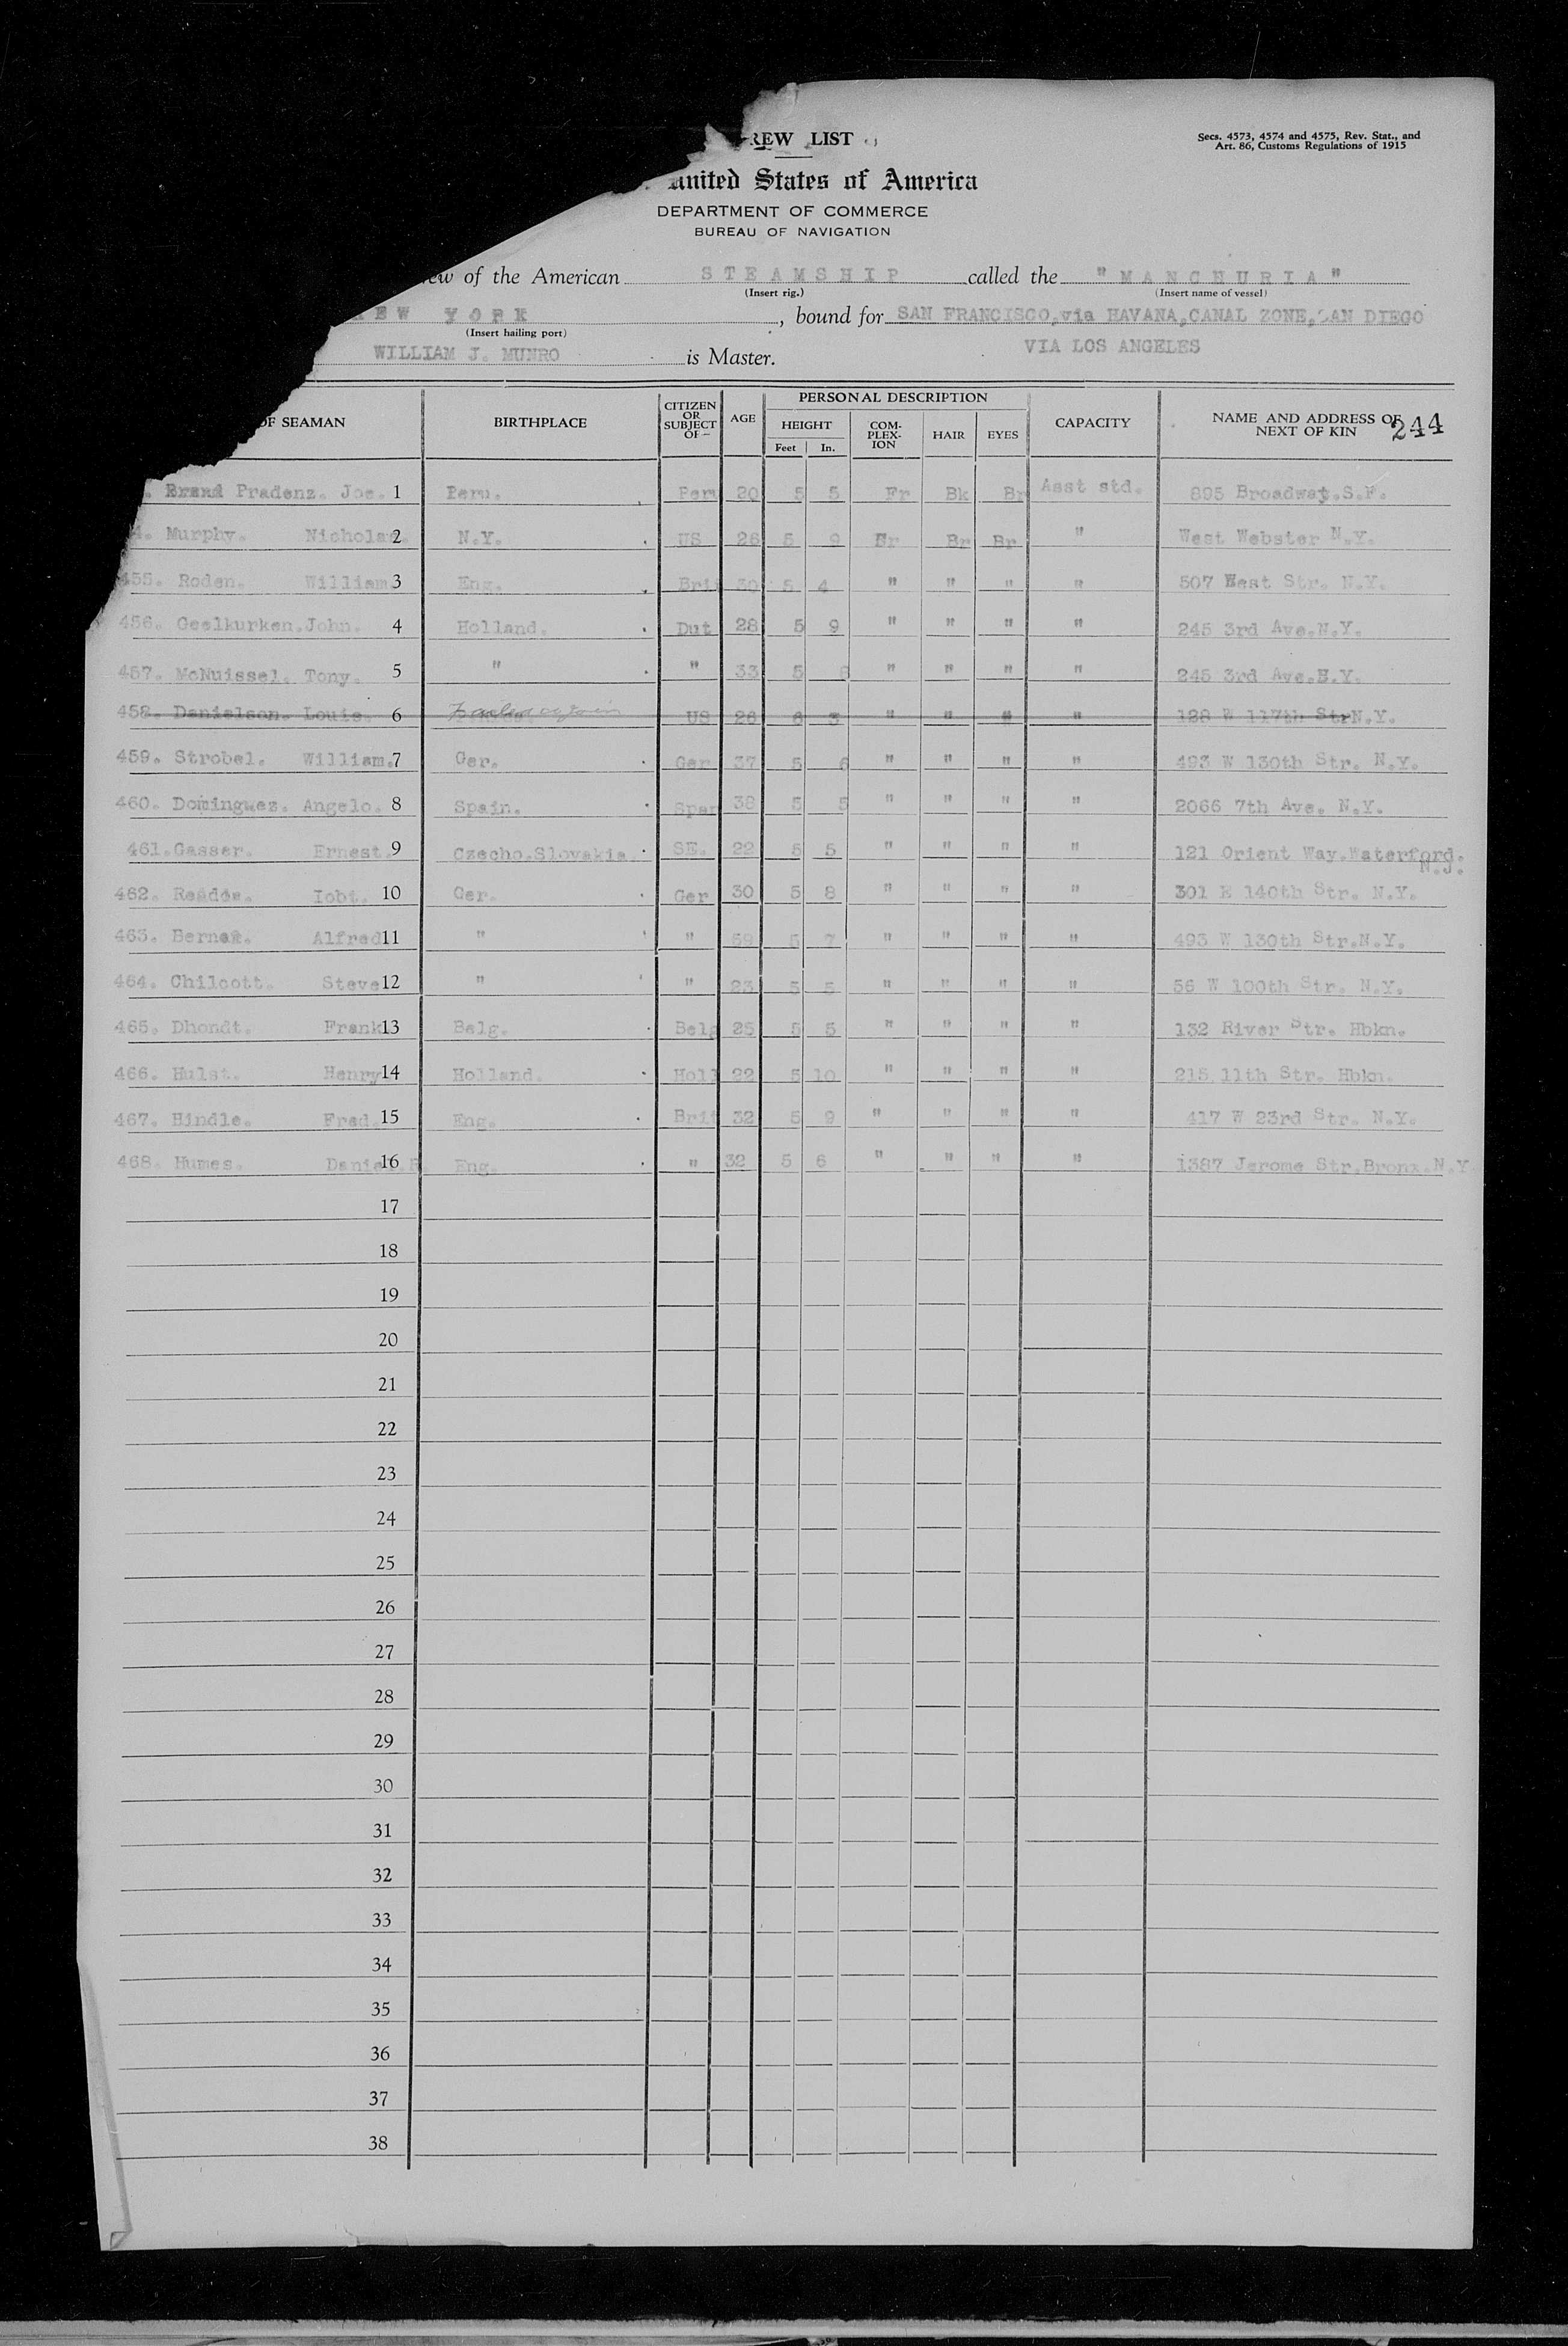 REW LIST
Secs. 4573, 4574 and 4575, Rev. Stat., and
Art. 86, Customs Regulations of 1915
United States of America
DEPARTMENT OF COMMERCE
BUREAU OF NAVIGATION
ew of the American STEAMSHIP called the "MANCHURIA"
(Insert rig.) (Insert name of vessel)
EW YORK, bound for SAN FRANCISCO, via HAVANA, CANAL ZONE, SAN DIEGO
(Insert hailing port)
WILLIAM J. MUNRO is Master. VIA LOS ANGELES
OF SEAMAN BIRTHPLACE CITIZEN OR SUBJECT OF— AGE PERSONAL DESCRIPTION HEIGHT Feet In. COM-PLEX-ION HAIR EYES CAPACITY NAME AND ADDRESS OF NEXT OF KIN 244
Pradenz. Joe. 1 Peru. Peru 20 5 5 Fr Bk Br Asst std. 895 Broadway.S.F.
4. Murphy. Nicholas. 2 N.Y. US 26 5 9 Fr Br Br " West Webster N.Y.
455. Roden. William 3 Eng. Brit 30 5 4 " " " " 507 West Str. N.Y.
456. Geelkurken.John. 4 Holland. Dut 28 5 9 " " " " 245 3rd Ave.N.Y.
457. McNuissel. Tony. 5 " " 33 5 8 " " " " 245 3rd Ave.N.Y.
458. Danielson. Louis. 6 US 26 6 3 " " " " 128 W 117th Str N.Y.
459. Strobel. William. 7 Ger. Ger 37 5 6 " " " " 493 W 130th Str. N.Y.
460. Dominguez. Angelo. 8 Spain. Span 38 5 5 " " " " 2066 7th Ave. N.Y.
461. Gasser. Ernest. 9 Czecho.Slovakia. SE. 22 5 5 " " " " 121 Orient Way.Waterford. N.J.
462. Iobt. 10 Ger. Ger 30 5 8 " " " " 301 E 140th Str. N.Y.
463. Alfred 11 " " 59 5 7 " " " " 493 W 130th Str.N.Y.
464. Chilcott. Steve 12 " " 23 5 5 " " " " 56 W 100th Str. N.Y.
465. Dhondt. Frank 13 Belg. Belg 25 5 5 " " " " 132 River Str. Hbkn.
466. Hulst. Henry 14 Holland. Holl 22 5 10 " " " " 215 11th Str. Hbkn.
467. Hindle. Fred. 15 Eng. Brit 32 5 9 " " " " 417 W 23rd Str. N.Y.
468. Humes. Daniel. 16 Eng. " 32 5 6 " " " " 1387 Jerome Str.Bronx.N.Y.
17
18
19
20
21
22
23
24
25
26
27
28
29
30
31
32
33
34
35
36
37
38